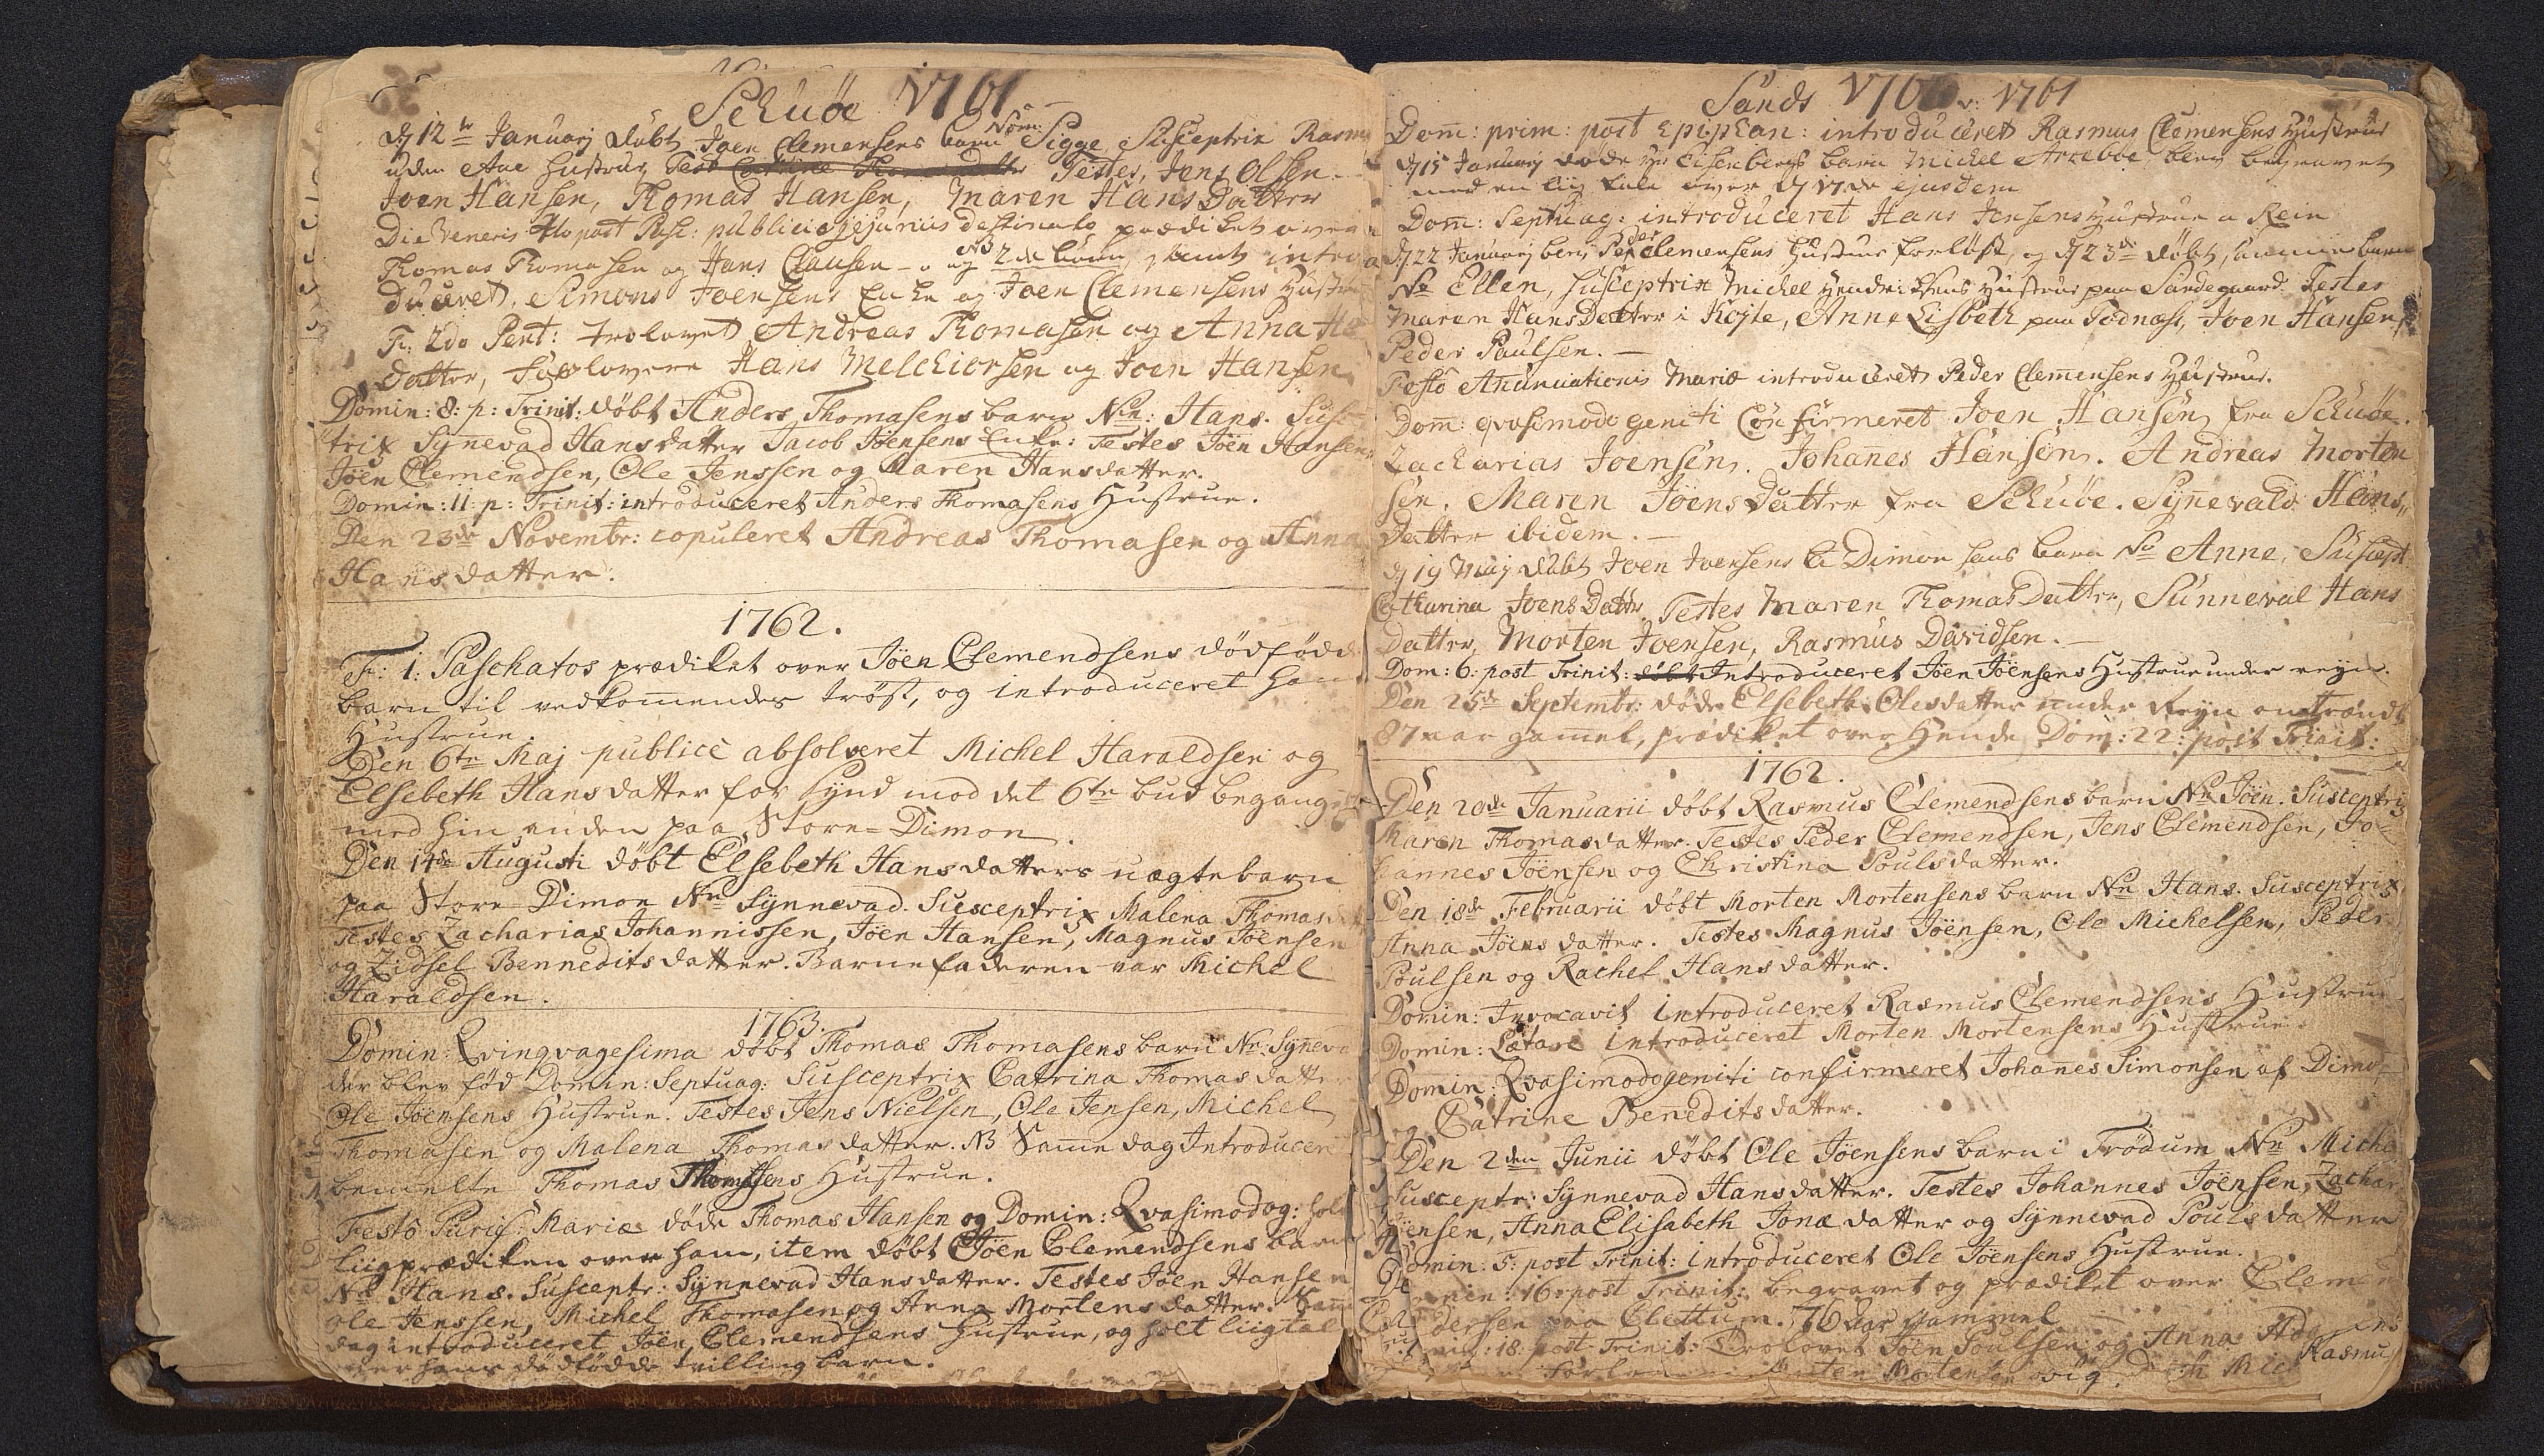 Schuöe 1761
dj 12te Januarj döbt Joen Clemensens barn Nom: Sigge, Susceptrix Rasmus
uden Aae Hustrue, Testes, Jens Olsen
Joen Hansen, Thomas Hansen, Maren HansDatter
Die Veneris 4to post Pasc: publicis jejuniis destinato prædiket over
Thomas Thomasen og Hans Clausen og 2de börn, samt intro
duceret, Simons Joensens Enke og Joen Clemensens Hustrue
F: 2do Pent: trolovet Andreas Thomasen og Anna Ha
datter, Forlovere Hans Melchiorsen og Joen Hansen
Domin: 8: p: Trinit: döbt Anders Thomasens barn Nn: Hans. Susc
trix Synnevad Hansdatter Jacob Jöensens Enke: Testes Jöen Hansen
Jöen Clemendsen, Ole Jenssen og Maren Hansdatter.
Domin: 11: p: Trinit: introduceret Anders Thomasens Hustrue.
Den 23de Novembr: copuleret Andreas Thomasen og Anna
Hansdatter.
1762.
F: 1: Paschatos prædiket over Jöen Clemendsens dödfödde
barn til vedkommendes tröst, og introduceret hans
Hustrue.
Den 6te Maj publicè absolveret Michel Haraldsen og
Elsebeth Hansdatter for Synd mod det 6te bud begangen
med hin anden paa Store-Dimon.
Den 14de Augusti döbt Elsebeth Hansdatters uægte barn
paa Store-Dimon Nn Synnevad. Susceptrix Malena Thomasd
Testes Zacharias Johannissen, Jöen Hansen, Magnus Jöensen
og Zidsel Bennedits datter. Barnefaderen var Michel
Haraldsen.
1763.
Domin: Qvinqvagesima döbt Thomas Thomasens barn Nn: Synneva
der blev föd Domin: Septuag: Susceptrix Catrina Thomasdatter
Ole Joensens Hustrue. Testes Jens Nielsen, Ole Jensen, Michel
Thomasen og Malena Thomasdatter. NB Samme dag Introducere
bemelte Thomas Thomesens Hustrue.
Festo Purif: Mariæ döde Thomas Hansen og Domin: Qvasimodog: holdt
liigprædiken over ham, item döbt Jöen Clemendsens barn
Nn Hans. Susceptr: Synnevad Hansdatter. Testes Jöen Hansen
Ole Jenssen, Michel Thomasen og Anna Mortensdatter. Samme
dag introduceret Jöen Clemendsens Hustrue, og holt liigtal
over hans dödfödde tvilling barn.
Sands 1761
Dom: prim: post Epiphan: introduceret Rasmus Clemensens Hustrue
dj 15 Januarj döde Hr Eisenbergs barn Michel Arreboe, blev begravet
med en liig tale over dj 17de ejusdem
Dom: Septuag: introduceret Hans Jensens Hustrue u Rein
dj 22 Januarj blev Peder Clemensens Hustrue forlöst, og dj 23de döbt, samme barn
Nn Ellen, Susceptrix Michel Hendrichsens Hustrue paa Sandegaard. Testes
Maren HansDatter i Köjte, Anne Lisbeth paa Todnæs, Joen Hansen,
Peder Paulsen.
Festo Anunciationis Mariæ introduceret Peder Clemensens Hustrue.
Dom: qvasimodo geniti Confirmeret Joen Hansen fra Schuöe.
Zacharias Joensen. Johannes Hansen. Andreas Morten
sen. Maren JoensDatter fra Schuöe. Synevald Hans
Datter ibidem.
dj 19 Maij döbt Joen Joensens a Dimon hans barn Nn Anne, Suscept
Catharina JoensDatter Testes Maren ThomasDatter, Sunneval Hans
Datter, Morten Joensen, Rasmus Davidsen.
Dom: 6: post Trinit: döbt Introduceret Jöen Jöensens Hustrue under reyn.
Den 25de Septembr: döde Elsebeth Olesdatter under Reyn omtrendt
87 aar gammel, prædiket over Hende Dom: 22: post Trinit:
1762.
Den 20de Januarii döbt Rasmus Clemendsens barn Nn Jöen. Susceptrix
Maren Thomasdatter. Testes Peder Clemendsen, Jens Clemendsen, Jo-
hannes Jöensen og Christina Poulsdatter.
Den 18de Februarii döbt Morten Mortensens barn Nn Hans. Susceptrix
Anna Jöensdatter. Testes Magnus Jöensen, Ole Michelsen, Peder
Poulsen og Rachel Hansdatter.
Domin: Invocavit introduceret Rasmus Clemendsens Hustrue
Domin: Lætare introduceret Morten Mortensens Hustrue.
Domin: Qvasimodogeniti confirmeret Johannes Simonsen af Dimon
og Catrine Beneditsdatter.
Den 2den Junii döbt Ole Jöensens barn i Trödum Nn Miche
Susceptr: Synnevad Hansdatter. Testes Johannes Jöensen, Zachar
Jöensen, Anna Elisabeth Jonæ datter og Synnevad Poulsdatter
Domin: 5: post Trinit: introduceret Ole Jöensens Hustrue.
Domin: 16: post Trinit: begravet og prædiket over Clem
dersen paa Clettum. 76 Aar gammel
18: post Trinit: Trolovet Jöen Poulsen og Anna
Morten Mortensen